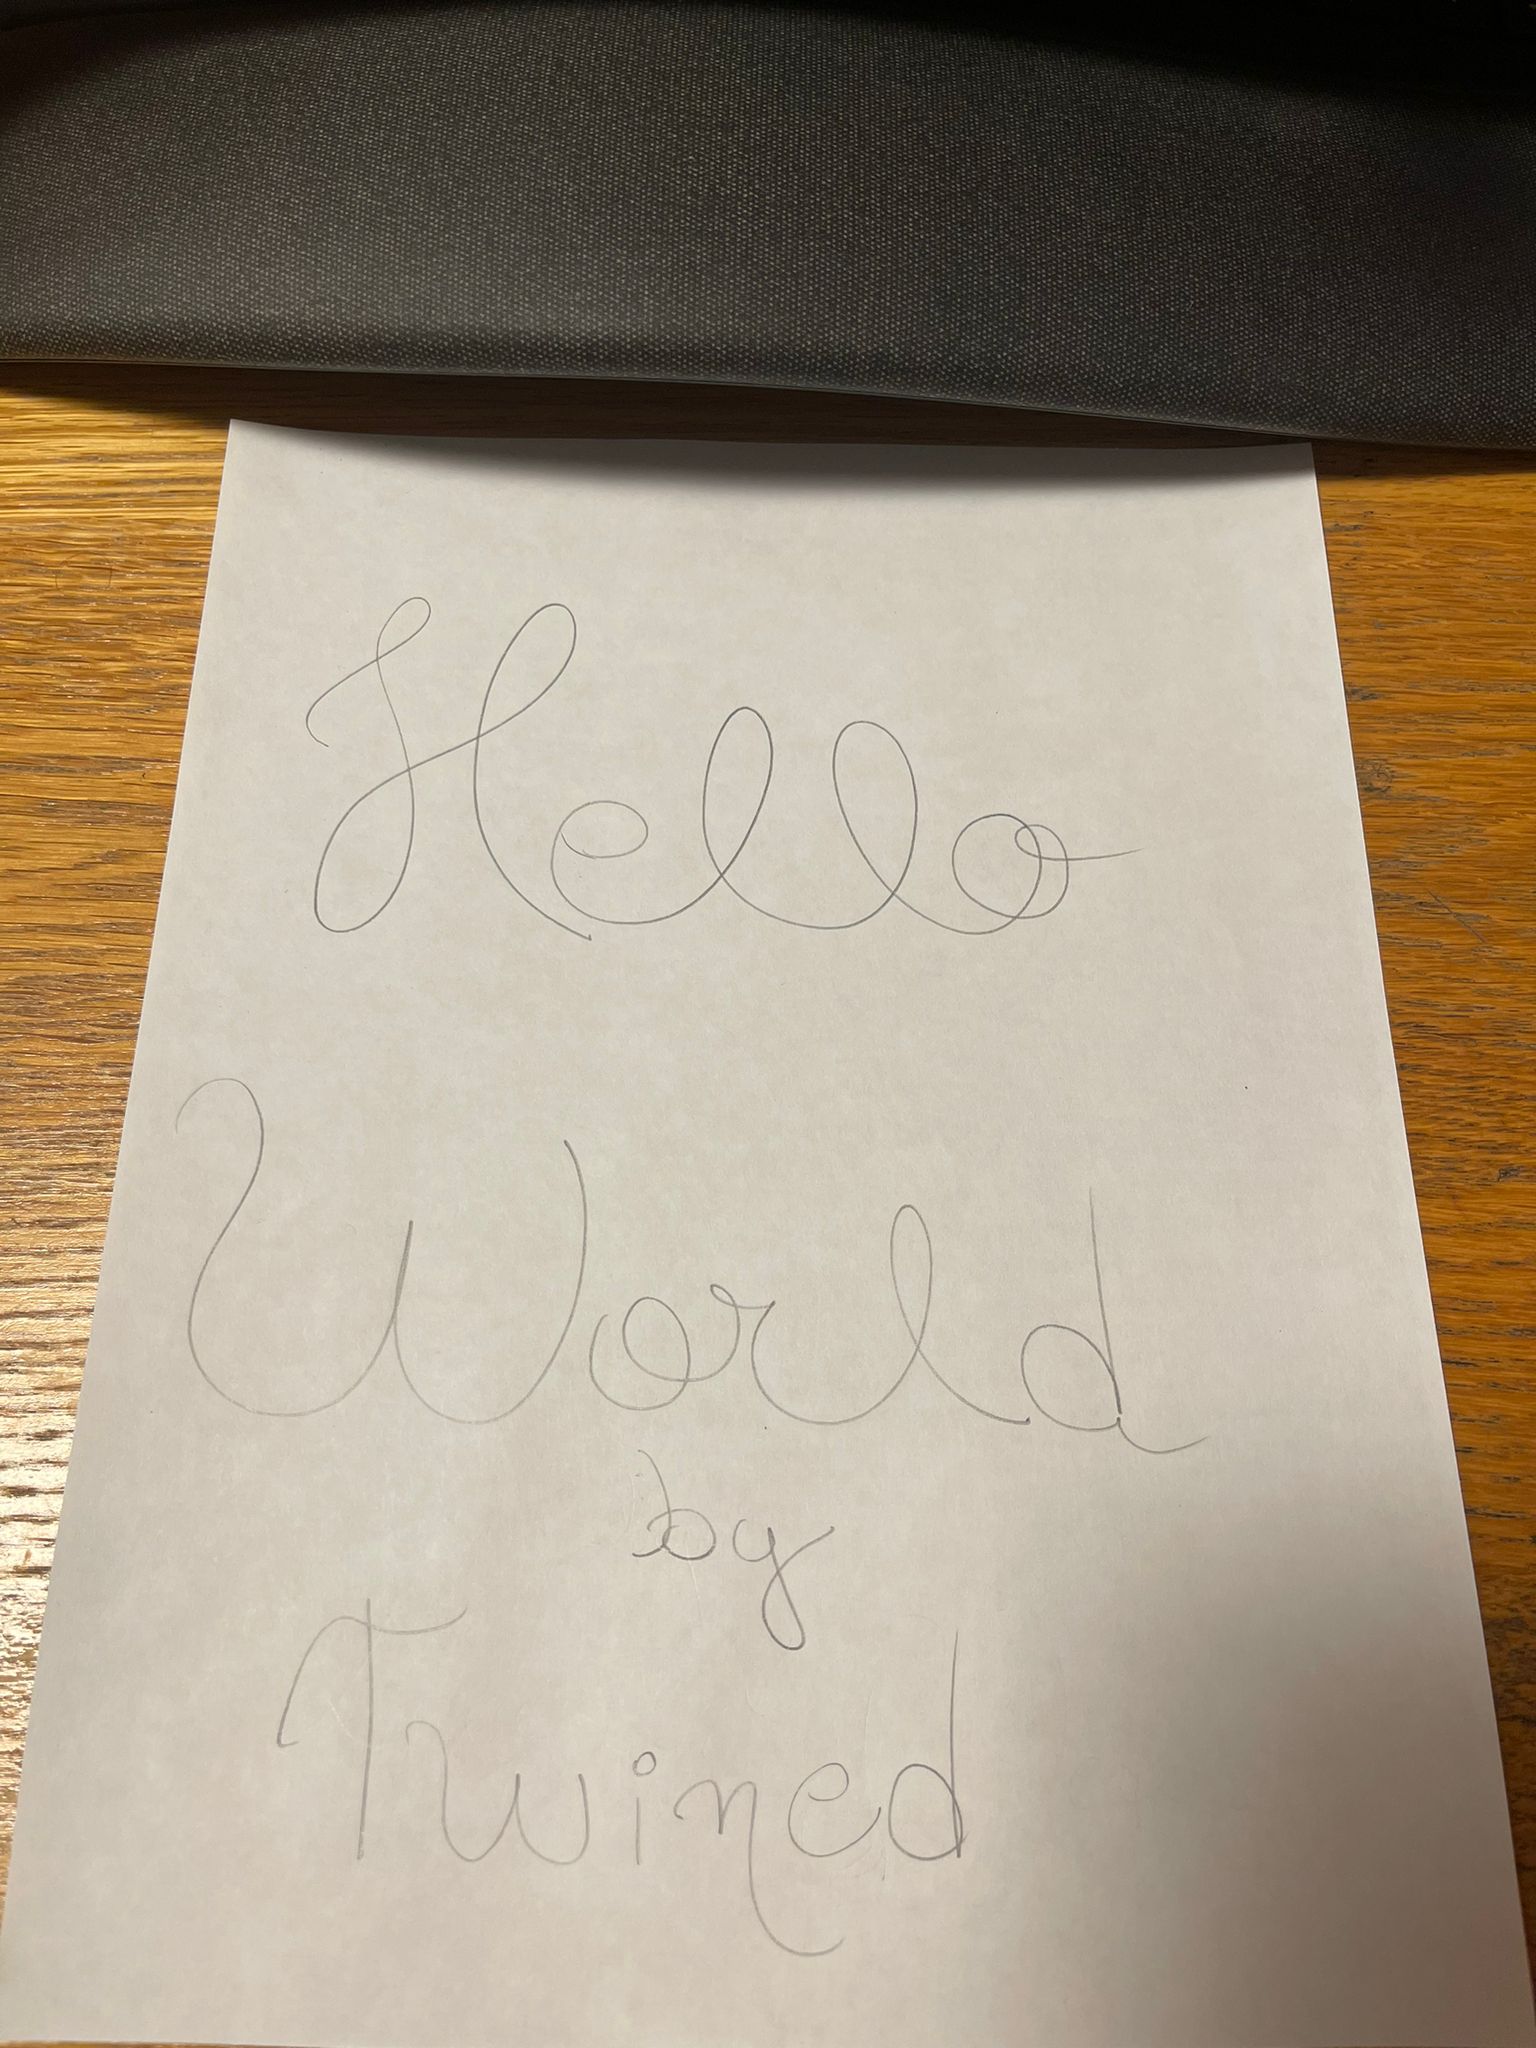 Hello
World
by
Twined